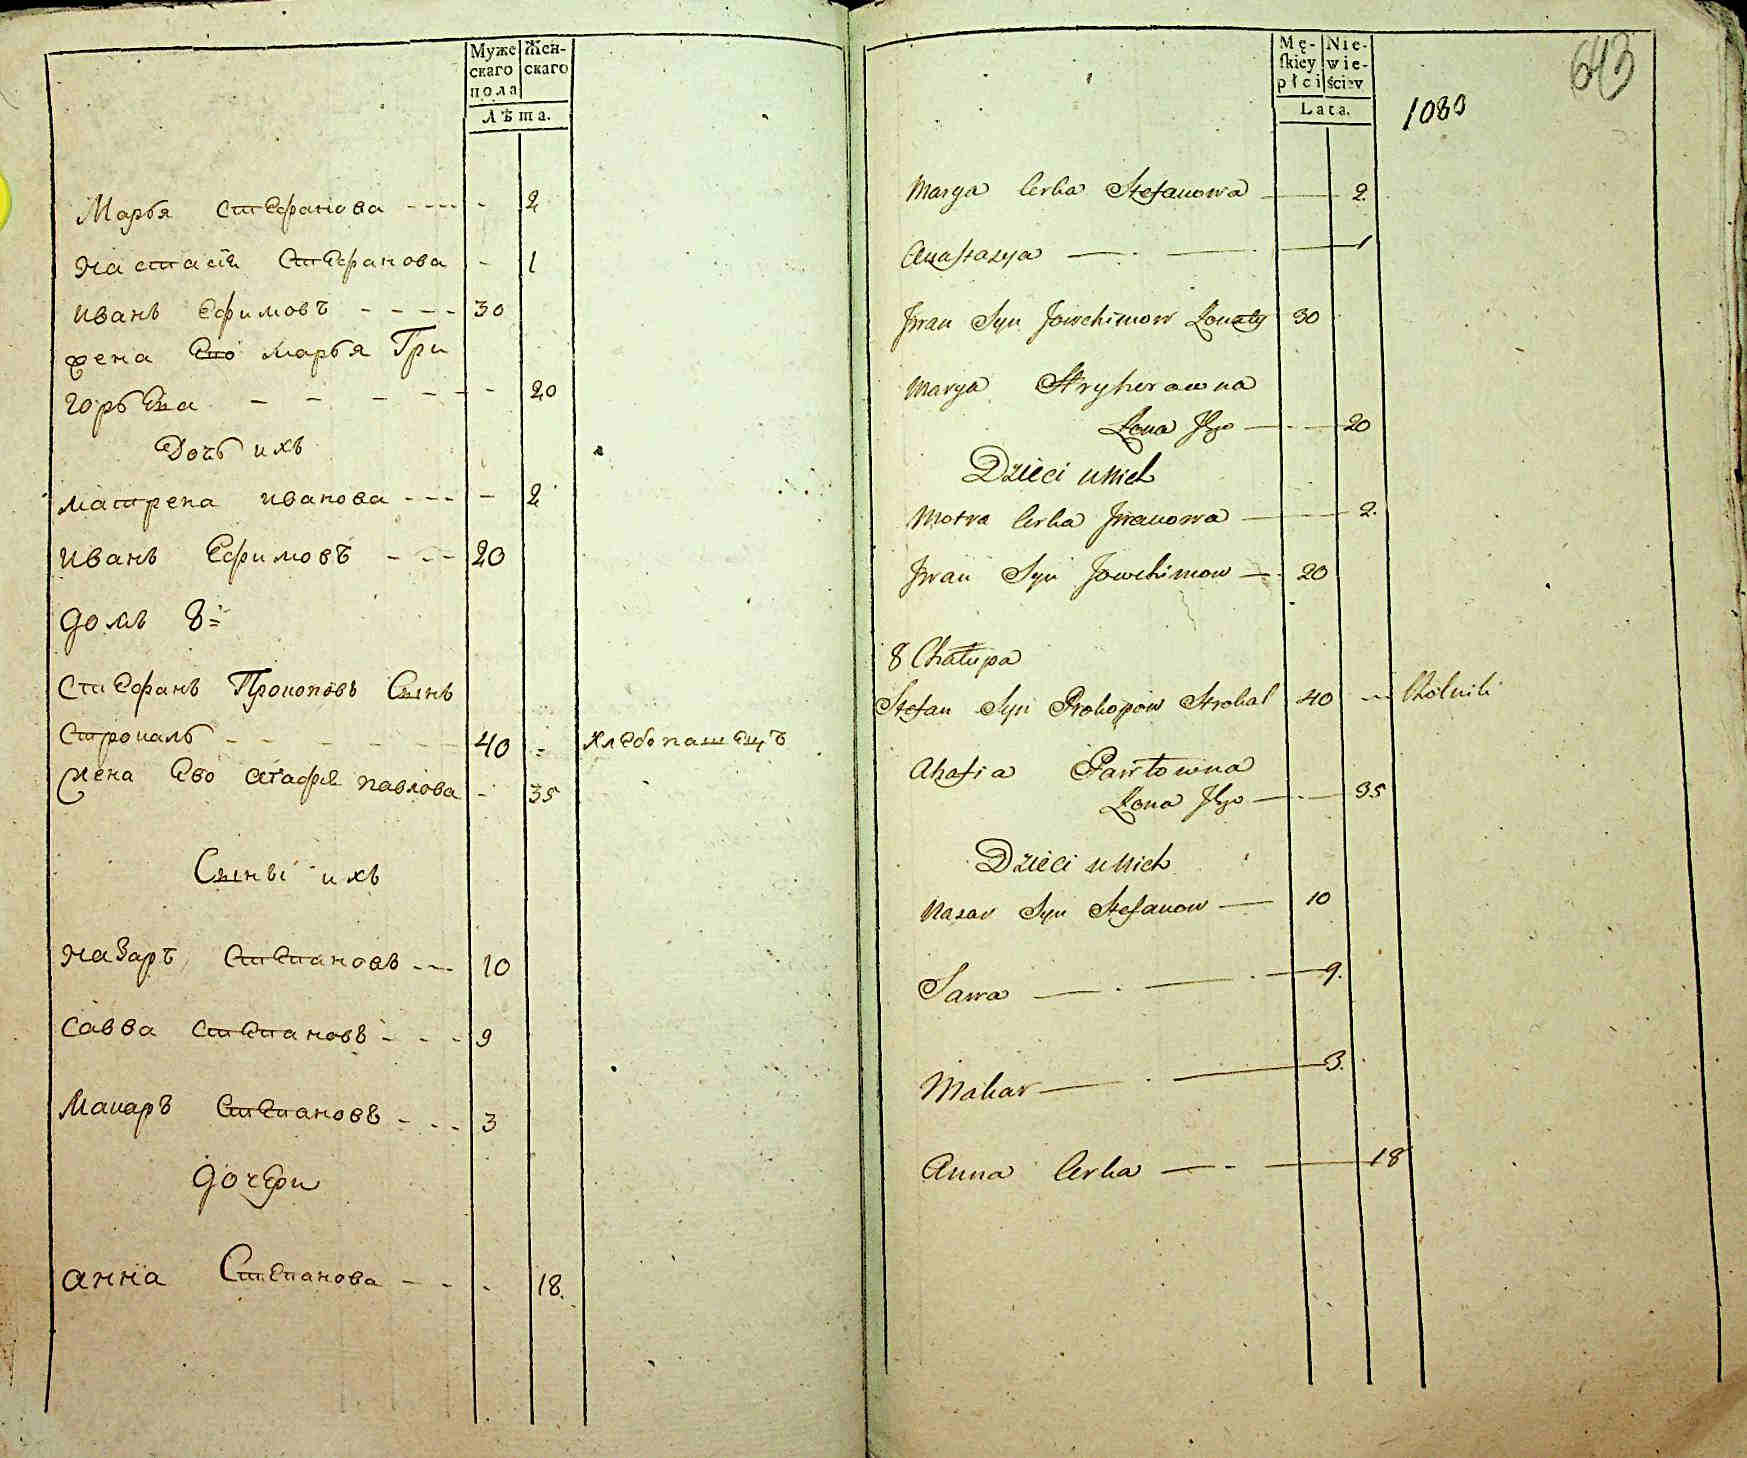 Муже
скаго
пола
Жен-
скаго
Лѣта.
Марья Стефанова - - - - - 2
Настасія Стефанова - 1
Иванъ Ефимовъ - - - - 30
жена Его Марья Гри
горьева - - - - - - 20
Дочь ихъ
Матрена Иванова - - - - 2
Иванъ Ефимовъ - - - 20
Домъ 8=
Стефанъ Прокоповъ Сынъ
Строкаль - - - - - - 40 = Хлебопашецъ
Жена Ево Агафія Павлова - 35
Сыны ихъ
Назаръ Степановъ - - - 10
Савва Степановъ - - - 9
Макаръ Степановъ - - - 3
Дочери
Анна Степанова - - - 18.
Mę-
skiey
płci
Nie-
wie-
ściey
Lata.
643
1080
Marya Corka Stefanowa — 2.
Anastazya — . — . — 1
Jwan Syn Jowchimow Zonaty 30
Marya Hryhorowna
Zona Jego — . — 20
Dzieci u Nich
Motra Corka Jwanowa — 2.
Jwan Syn Jowchimow — . 20
8 Chałupa
Stefan Syn Prokopow Strokal 40 — Rolnik
Ahafia Pawłowna
Zona Jego — . — 35
Dzieci u Nich
Nazar Syn Stefanow — 10
Sawa — . — . — 9.
Makar — . — 3.
Anna Corka — - — 18